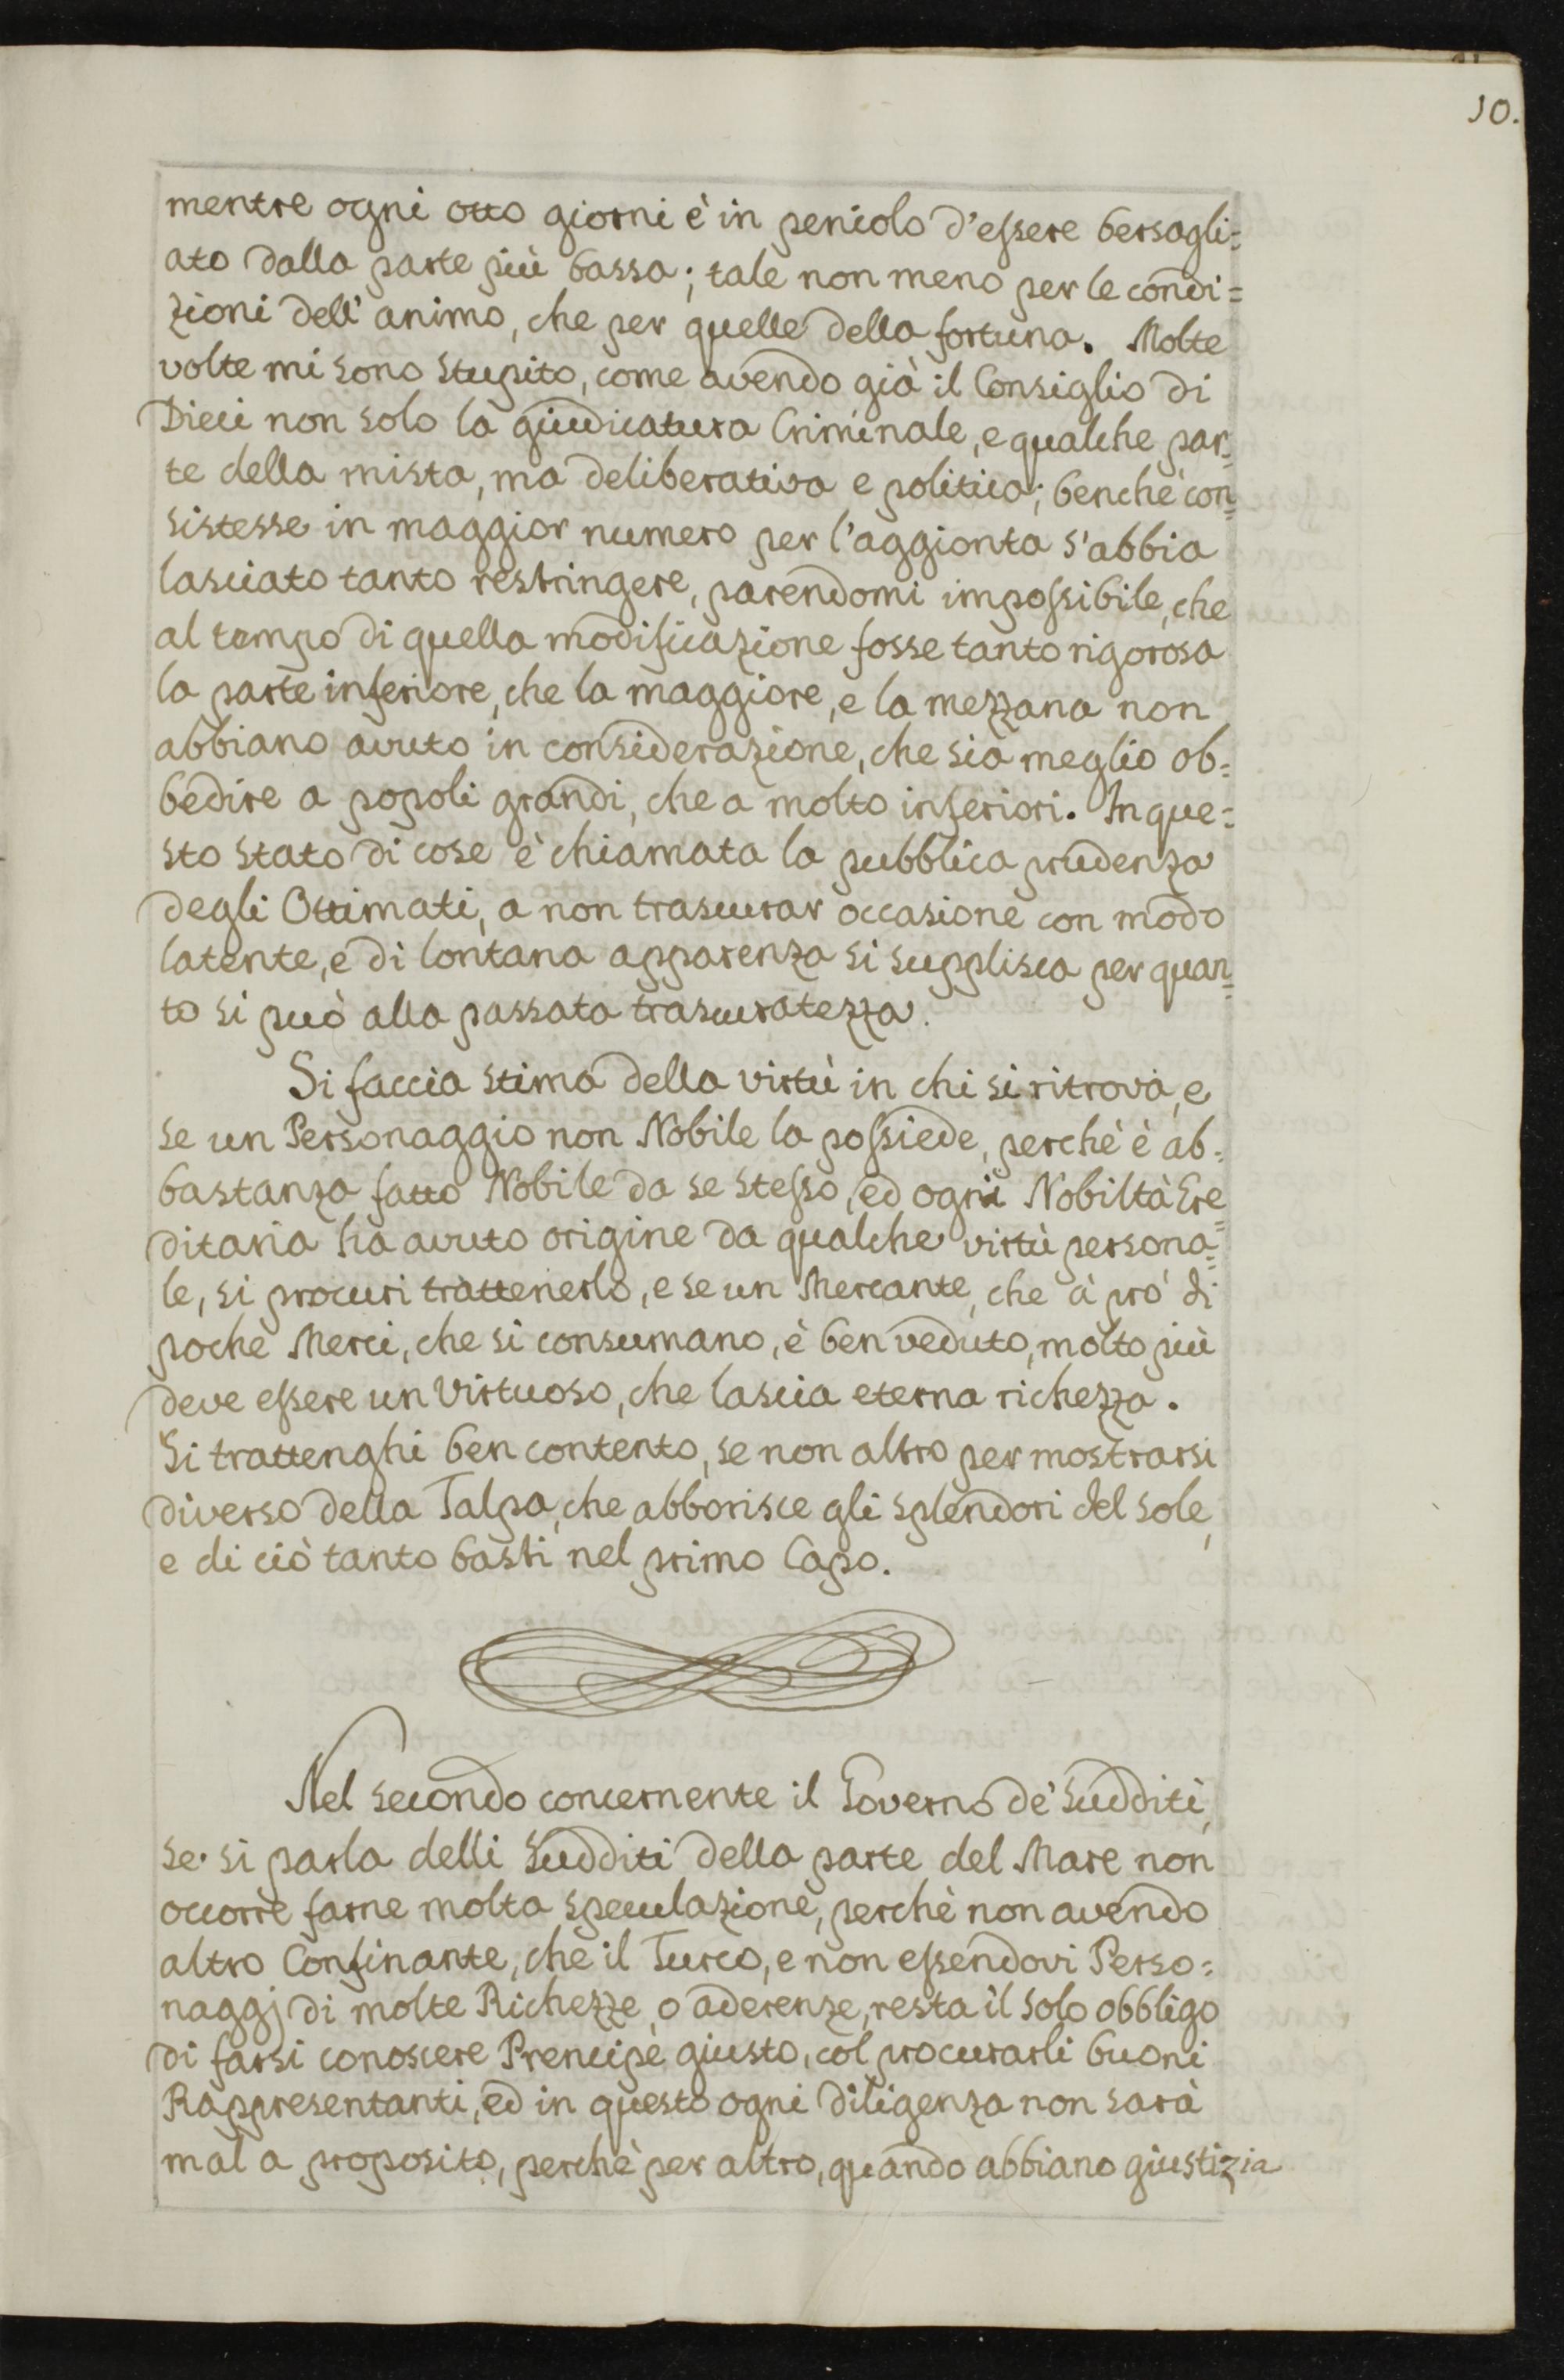 10.
mentre ogni otto giorni è in pericolo d'essere bersagli=
ato dalla parte più bassa; tale non meno per le condi=
zioni dell'animo, che per quelle della fortuna. Molte
volte mi sono stupito, come avendo già il Consiglio di
Dieci non solo la giudicatura Criminale, e qualche par=
te della mista, ma deliberativa e politica; benchè con=
sistesse in maggior numero per l'aggionta s'abbia
lasciato tanto restringere, parendomi impossibile, che
al tempo di quella modificazione fosse tanto rigorosa
la parte inferiore, che la maggiore, e la mezzana non
abbiano avuto in considerazione, che sia meglio ob=
bedire a popoli grandi, che a molto inferiori. In que=
sto stato di cose è chiamata la pubblica prudenza
degli Ottimati, a non trascurar occasione con modo
latente, e di lontana apparenza si supplisca per quan=
to si può alla passata trascuratezza.
Si faccia stima della virtù in chi si ritrova, e
se un Personaggio non Nobile la possiede, perchè è ab=
bastanza fatto Nobile da se stesso, ed ogni Nobiltà Ere=
ditaria ha avuto origine da qualche virtù persona=
le, si procuri trattenerlo, e se un Mercante, che à prò di
poche Merci, che si consumano, è ben veduto, molto più
deve essere un Virtuoso, che lascia eterna richezza.
Si trattenghi ben contento, se non altro per mostrarsi
diverso della Talpa, che abborisce gli splendori del sole,
e di ciò tanto basti nel primo Capo.
Nel secondo concernente il Governo de' Sudditi,
se si parla delli Sudditi della parte del Mare non
occorre farne molta speculazione, perchè non avendo
altro Confinante, che il Turco, e non essendovi Perso=
naggj di molte Richezze, o aderenze, resta il solo obbligo
di farsi conoscere Prencipe giusto, col procurarli buoni
Rappresentanti, ed in questo ogni diligenza non sarà
mal a proposito, perchè per altro, quando abbiano giustizia